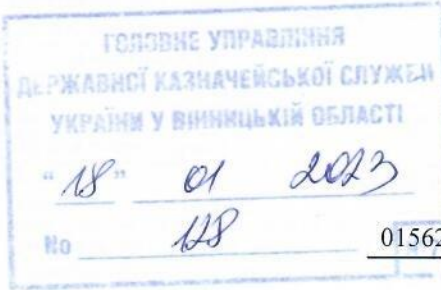 ГОЛОВНЕ УПРАВЛІННЯ
ДЕРЖАВНОЇ КАЗНАЧЕЙСЬКОЇ СЛУЖБИ
УКРАЇНИ У ВІННИЦЬКІЙ ОБЛАСТІ
"18" 01 2023
No 128
01562